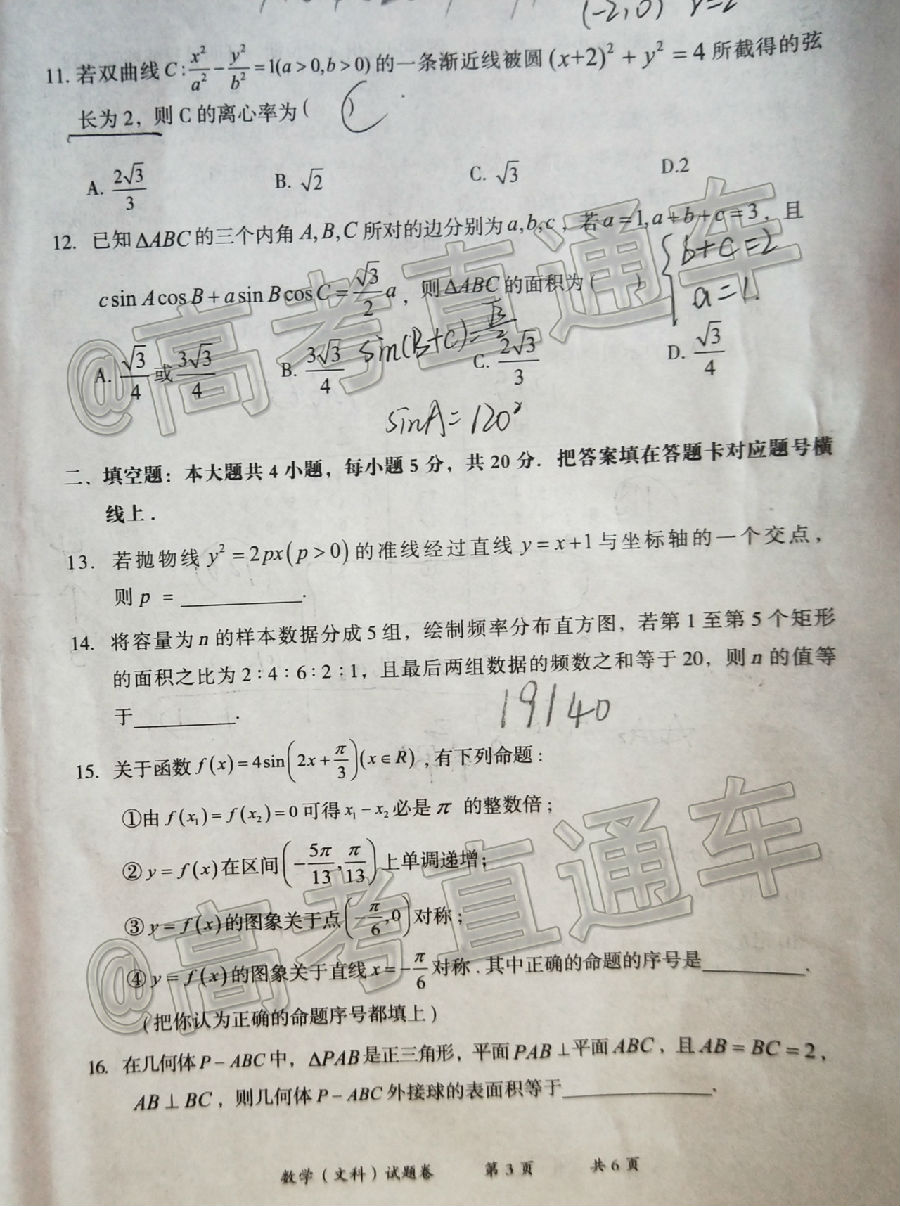 (-2,0) r=2
11. 若双曲线 C:x²/a²-y²/b²=1(a>0,b>0)的一条渐近线被圆(x+2)²+y²=4所截得的弦
长为2，则C的离心率为(
A. 2√3/3 B. √2 C. √3 D.2
12. 已知△ABC的三个内角A,B,C所对的边分别为a,b,c，若a=1,a+b+c=3，且
b+c=2
a=1
csinAcosB+asinBcosC=√3/2 a，则△ABC的面积为( )
sin(B+C)=√3/2
A. √3/4或3√3/4 B. 3√3/4 C. 2√3/3 D. √3/4
sinA=120°
二、填空题：本大题共4小题，每小题5分，共20分．把答案填在答题卡对应题号横
线上．
13. 若抛物线y²=2px(p>0)的准线经过直线y=x+1与坐标轴的一个交点，
则p=________.
14. 将容量为n的样本数据分成5组，绘制频率分布直方图，若第1至第5个矩形
的面积之比为2:4:6:2:1，且最后两组数据的频数之和等于20，则n的值等
于________.
19140
15. 关于函数f(x)=4sin(2x+π/3)(x∈R),有下列命题:
①由f(x₁)=f(x₂)=0可得x₁-x₂必是π的整数倍；
②y=f(x)在区间(-5π/13,π/13)上单调递增；
③y=f(x)的图象关于点(-π/6,0)对称；
④y=f(x)的图象关于直线x=-π/6对称.其中正确的命题的序号是________.
(把你认为正确的命题序号都填上)
16. 在几何体P-ABC中，△PAB是正三角形，平面PAB⊥平面ABC，且AB=BC=2，
AB⊥BC，则几何体P-ABC外接球的表面积等于________.
数学(文科)试题卷 第3页 共6页
@高考直通车
@高考直通车